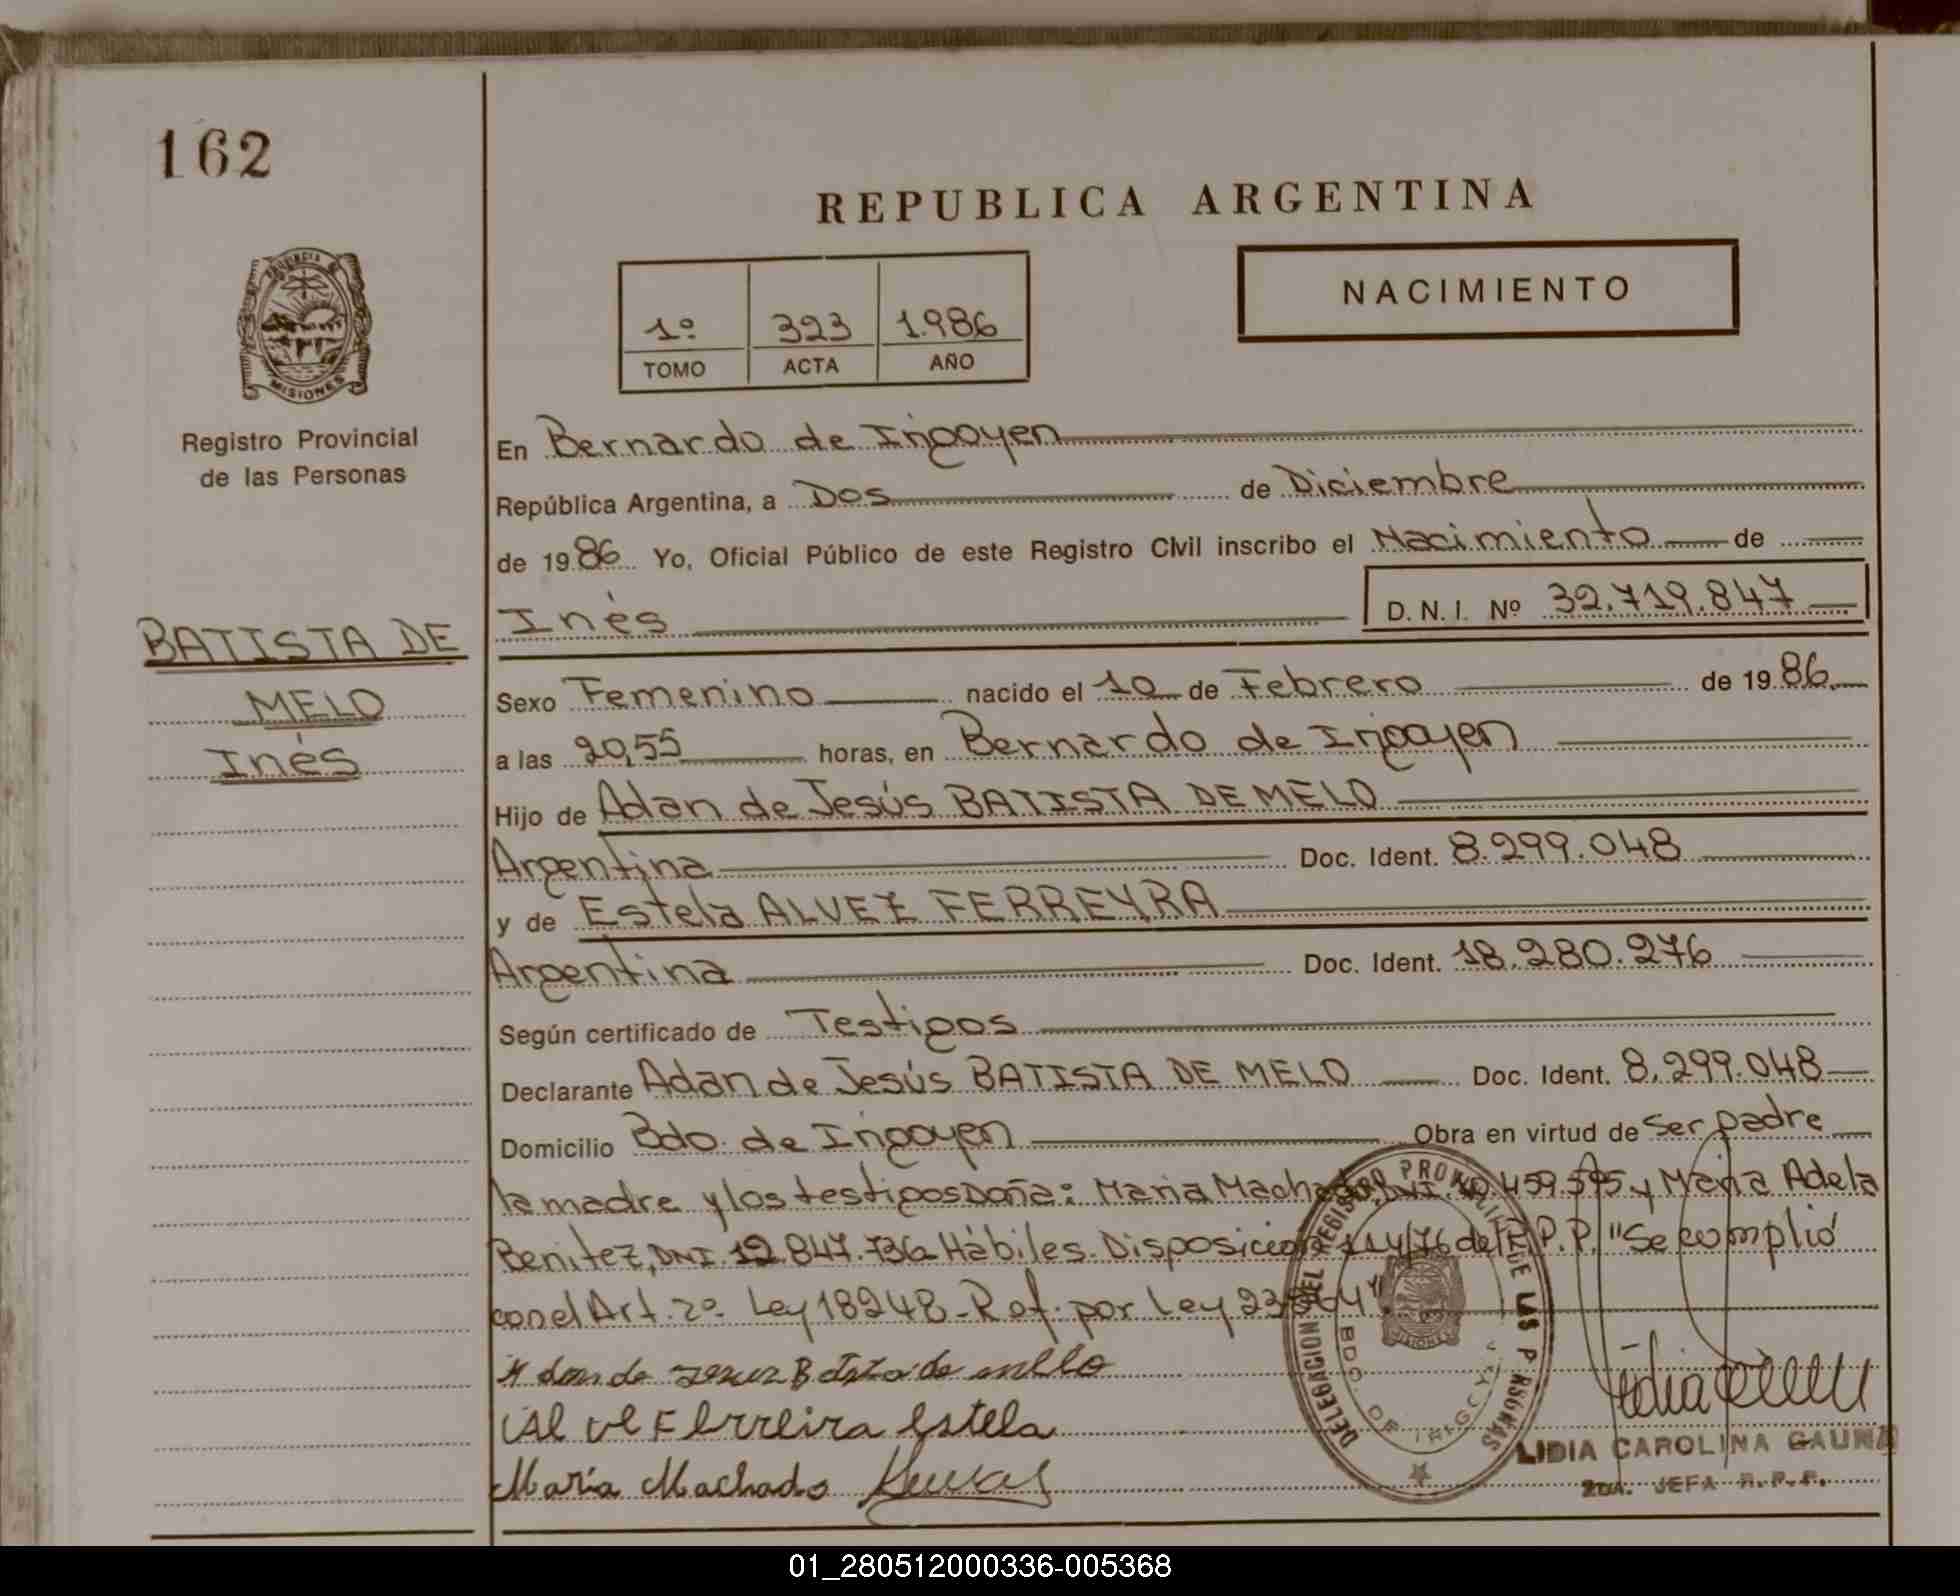 162
REPUBLICA ARGENTINA
NACIMIENTO
1º 323 1.986
TOMO ACTA AÑO
PROVINCIA DE
MISIONES
Registro Provincial
de las Personas
BATISTA DE
MELO
Inés
En Bernardo de Irigoyen
República Argentina, a Dos de Diciembre
de 1986 Yo, Oficial Público de este Registro Civil inscribo el Nacimiento de
Inés D. N. I. Nº 32.719.847
Sexo Femenino nacido el 10 de Febrero de 1986
a las 20,55 horas, en Bernardo de Irigoyen
Hijo de Adan de Jesús BATISTA DE MELO
Argentina Doc. Ident. 8.299.048
y de Estela ALVEZ FERREYRA
Argentina Doc. Ident. 18.280.276
Según certificado de Testigos
Declarante Adan de Jesús BATISTA DE MELO Doc. Ident. 8.299.048
Domicilio Bdo. de Irigoyen Obra en virtud de Ser padre
la madre y los testigos Doña: Maria Machado, DNI. y Maria Adela
Benitez, DNI. 12.847.736 Hábiles. Disposición 114/76 del R.P.P. "Se complió
con el Art. 2º Ley 18248-Ref. por Ley
Adan de Jesus Batista de mello
Alve Ferreira Estela
María Machado
DELEGACION DEL REGISTRO PROVINCIAL DE LAS PERSONAS
BDO. DE IRIGOYEN
LIDIA CAROLINA GAUNA
2DA. JEFA R.P.P.
01_280512000336-005368